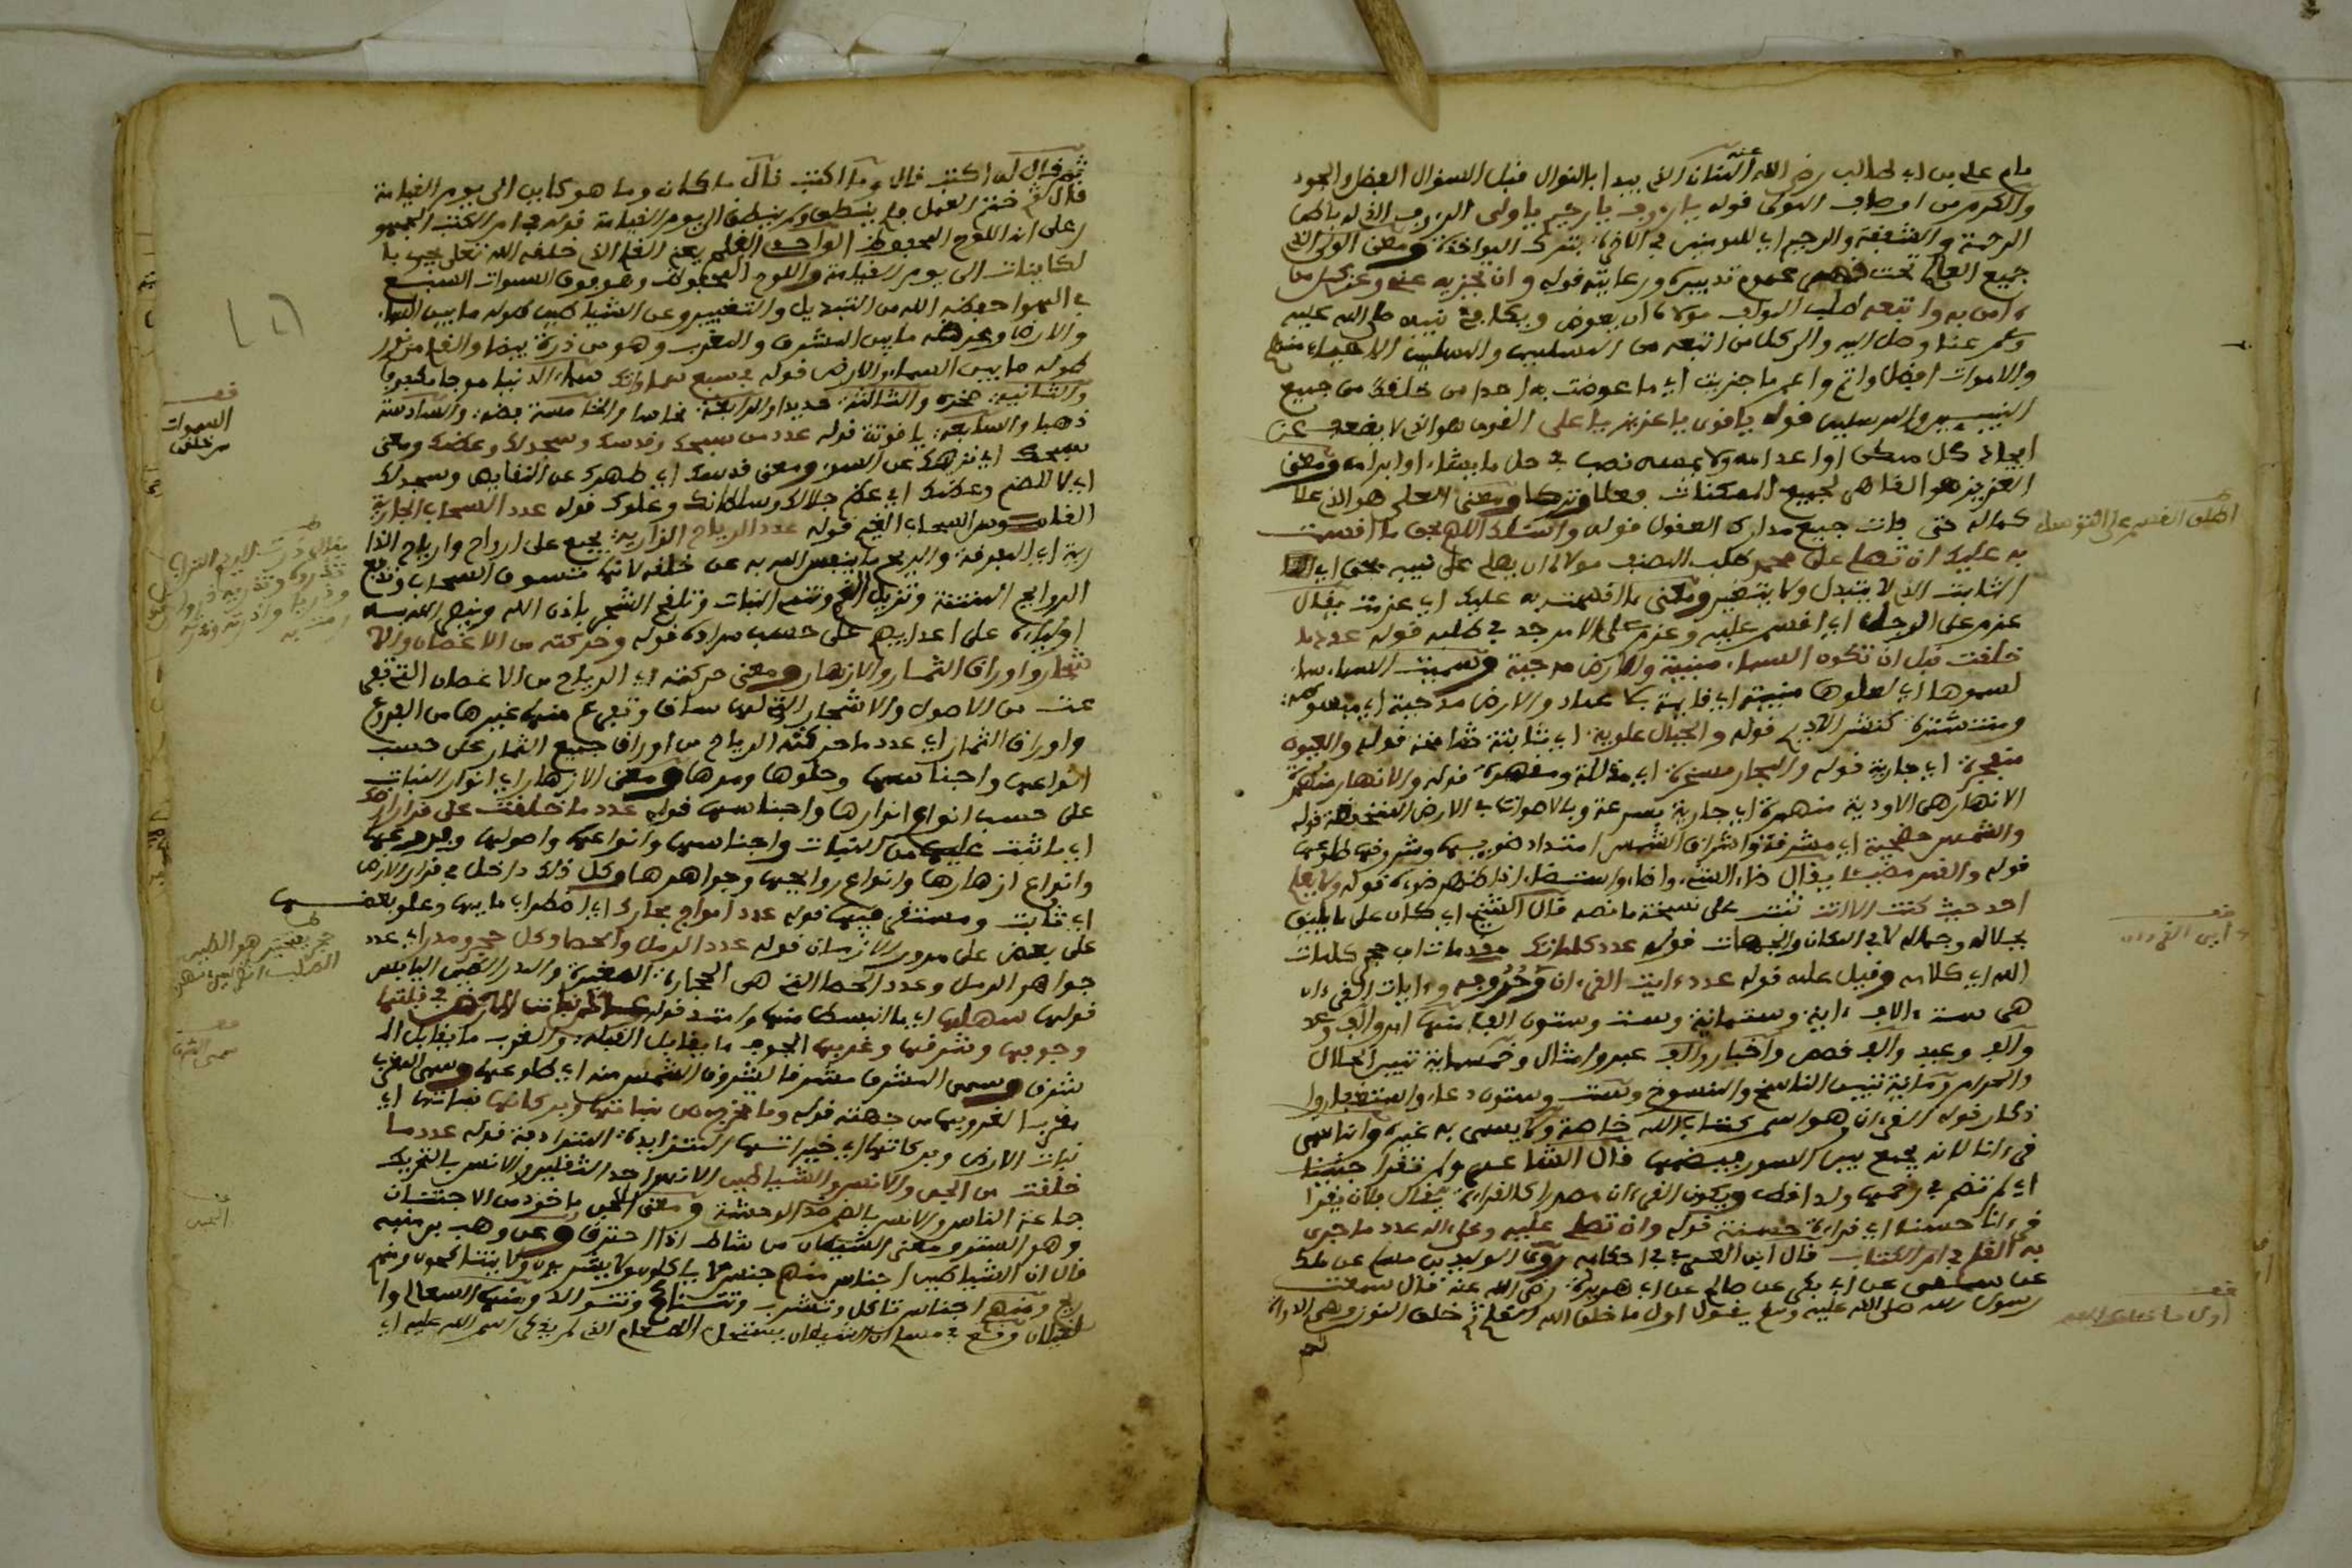 مام علي بن ابي طالب رضي الله عنه المنان الذي يبدا بالنوال قبل السؤال الفضل والجود
والكرم من اوصاف المولى قوله يا رءوف يا رحيم يا ولي الرءوف الذي له باطن
الرحمة والشفقة والرحيم اي للمومنين في الاخرة بترك المواخذة ومعنى الولي الذي
جميع العالم تحت تدبيره ورعايته قوله وان تجزيه عنه وعن كل من
ءامن به واتبعه طلب المولف مولانا ان يعوض ويكافي نبيه صلى الله عليه
وسلم عنا وصل اليه والى كل من اتبعه من المسلمين والمسلمين الاحياء منهم
والاموات افضل واتم واعم ما جزيت اي ما عوضت به احدا من خلقك من جميع
النبيين والمرسلين قوله يا قوي يا عزيز يا علي القوي هو الذي لا يضعف عن
ايجاد كل ممكن او اعدامه ولا يمسه نصب في حل ما يشاء او ابرامه ومعنى
العزيز هو القاهر لجميع الممكنات فعلا وتركا ومعنى العلي هو الذي علا
كماله حتى فات جميع مدارك العقول قوله واسئلك اللهم بحق ما اقسمت
به عليك ان تصلي على محمد طلب المصنف مولانا ان يصلي على نبيه بحق اي
الثابت الذي لا يتبدل ولا يتغير ومعنى ما اقسمت به عليك اي عزمت يقال
عزم على الرجل اي اقسم عليه وعزم على الامر جد في طلبه قوله عدد ما
خلقت قبل ان تكون السماء مبنية والارض مدحية وسميت السماء سماء
لسموها اي لعلوها مبنية اي قايمة بلا عماد والارض مدحية اي مبسوطة
ومنتشرة كنشر الاديم قوله والجبال علوية اي ثابتة شامخة قوله والعيون
منفجرة اي جارية قوله والبحار مسخرة اي مذللة ومقهورة قوله والانهار منهمرة
الانهار هي الاودية منهمرة اي جارية بسرعة وبالاصوات في الارض المنخفضة قوله
والشمس مضحية اي مشرقة واشراق الشمس امتداد ضوءها وشروقها طلوعها
قوله والقمر مضيئا يقال ضاء الشيء واضاء واستضاء اذا ظهر ضوءه قوله ولا يعلم
احد حيث كنت الا انت ثبت على نسخة ما نصه قال الشيخ اي كان على ما يليق
بجلاله وجماله لا في المكان والجهات قوله عدد كلماتك
الله اي كلامه وقيل علمه قوله عدد ءايت القرءان وحروفه وءايات القرءان
هي ستة ءالاف ءاية وستمائة وست وستون الف منها امر والف وعد
والف وعيد والف قصص واخبار والف عبر وامثال وخمسمائة تبيين الحلال
والحرام ومائة تبيين الناسخ والمنسوخ وست وستون دعاء واستغفار و
ذكار قوله القرءان هو اسم كتاب الله خاصة ولا يسمى به غيره وانما سمي
قرءانا لانه يجمع بين السور فيضمها قال الشاعر ولم تقرا جنينا
اي لم تضم في رحمها ولدا قط ويكون القرءان مصدرا كالقراءة يقال فلان يقرا
قرءانا حسنا اي قراءة حسنة قوله وان تصلي عليه وعلى ءاله عدد ما جرى
به القلم في ام الكتاب قال ابن العربي في احكامه روى الوليد بن مسلم عن ملك
عن سمي عن ابي بكر عن صالح عن ابي هريرة رضي الله عنه قال سمعت
رسول الله صلى الله عليه وسلم يقول اول ما خلق الله القلم ثم خلق النون وهي الدواة
ثم
اول ما خلق الله
ثم قال له اكتب قال وما اكتب قال ما كان وما هو كاين الى يوم القيامة
قال ثم ختم العمل فلم ينطق ولم ينطق الى يوم القيامة قوله في ام الكتب الجمهور
على انه اللوح المحفوظ الواحدي القلم يعني القلم الذي خلقه الله تعلى يجري با
لكاينات الى يوم القيامة واللوح المحفوظ وهو فوق السموات السبع
في الهوا حفظه الله من التبديل والتغيير وعن الشياطين طوله ما بين السماء
والارض وعرضه ما بين المشرق والمغرب وهو من درة بيضا والقلم من نور
طوله ما بين السماء والارض قوله في سبع سماواتك سماء الدنيا موجا مكفوفا
والثانية صخرة والثالثة حديدا والرابعة نحاسا والخامسة فضة والسادسة
ذهبا والسابعة ياقوتة قوله عدد من سبحك وقدسك وسجد لك وعظمك ومعنى
سبحك اي نزهك عن السوء ومعنى قدسك اي طهرك عن النقايص وسجد لك
اي لا للصنم وعظمك اي عظم جلالك وسلطانك وعلوك قوله عدد السحاب الجارية
السحاب الغيم قوله عدد الرياح الذارية يجمع على ارواح وارياح الذا
رية اي المفرقة والريح ما ينفس الله به عن خلقه لانها تسوق السحاب وتدفع
الروايح المنتنة وتزيل الغم وتنمي النبات وتلقح الشجر باذن الله وينصر الله به
اولياءه على اعدايه على حسب مراده قوله وحركته من الاغصان والا
شجار واوراق الثمار والازهار ومعنى حركته اي الرياح من الاغصان التي تفر
عت من الاصول والاشجار التي لها ساق وتفرع منها غيرها من الفروع
واوراق الثمار اي عدد ما حركته الرياح من اوراق جميع الثمار على حسب
انواعها واجناسها وحلوها ومرها ومعنى الازهار اي انوار النبات
على حسب انواع انوارها واجناسها قوله عدد ما خلقت على قرار ارضك
اي ما ثبت عليها من النبات واجناسها وانواعها واصولها وفروعها
وانواع ازهارها وانواع روايحها وجواهرها وكل ذلك داخل في قرار الارض
اي ثابت ومستقر فيها قوله عدد امواج بحارك اي اضطراب مايها وعلو بعضها
على بعض على مرور الازمان قوله عدد الرمل والحصا وكل حجر ومدر اي عدد
جواهر الرمل وعدد الحصا التي هي الحجارة الصغيرة والمدر الطين اليابس
قوله سهلها اي ما انبسط منها وامتد قوله في قبلتها
وجوفها وشرقها وغربها الجوف ما يقابل القبلة والغرب ما يقابل الـ
شرق وسمي المشرق مشرقا لشروق الشمس منه اي طلوعها وسمي المغرب
مغربا لغروبها من جهته قوله وما يخرج من نباتها وبركاتها نباتها اي
نبات الارض وبركاتها اي خيراتها المتزايدة المترادفة قوله عدد ما
خلقت من الجن والانس والشياطين الانس احد الثقلين والانس بالتحريك
جماعة الناس والانس بالضم ضد الوحشة ومعنى الجن ماخوذ من الاجتنان
وهو الستر ومعنى الشيطان من شاط اذا احترق وعن وهب بن منبه
قال ان الشياطين اجناس منهم جنس لا ياكلون ولا يشربون ولا يتناكحون ومنهم
ريح ومنهم اجناس تاكل وتشرب وتتناكح وتتوالد ومنها السعالي وا
لغيلان وقع في مسلم ان الشيطان يستحل الطعام الذي لم يذكر اسم الله عليه اي
السموات
الجن